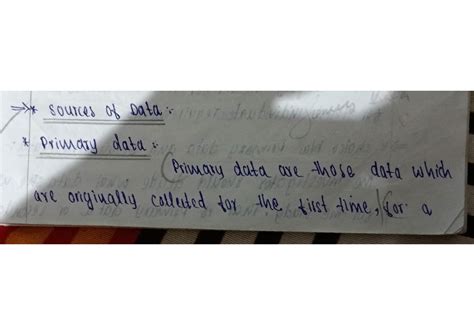 ⇒* Sources of Data :-
* Primary data :-
Primary data are those data which
are originally collected for the first time, for a